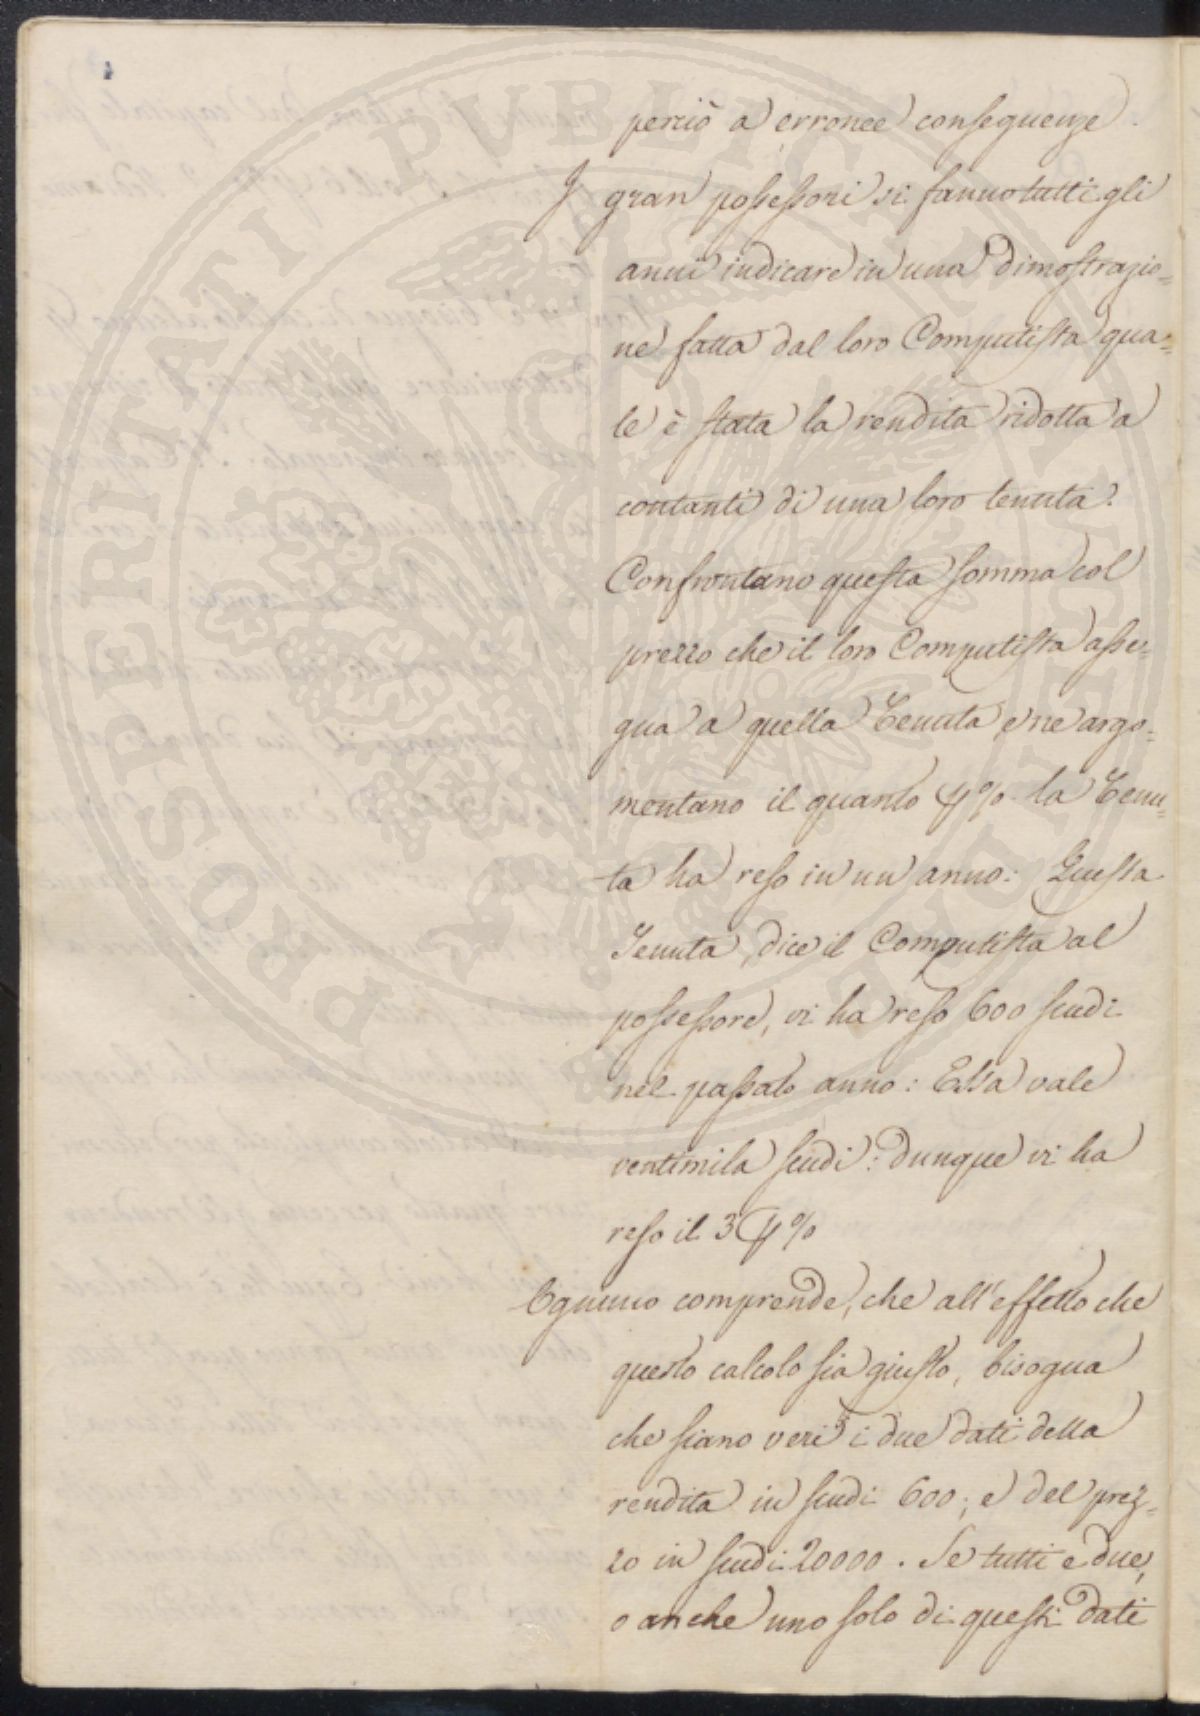 perciò a erronee conseguenze.
I gran possessori si fanno tutti gli
anni indicare in una dimostrazio=
ne fatta dal loro Computista qua=
le è stata la rendita ridotta a
contanti di una loro tenuta.
Confrontano questa somma col
prezzo che il loro Computista asse=
gna a quella Tenuta, e ne argo=
mentano il quanto p% la Tenu=
ta ha reso in un anno: Questa
Tenuta, dice il Computista al
possessore, vi ha reso 600 scudi
nel passato anno: Essa vale
ventimila scudi: dunque vi ha
reso il 3 p%
Ognuno comprende, che all'effetto che
questo calcolo sia giusto, bisogna
che siano veri i due dati della
rendita in scudi 600; e del prez=
zo in scudi 20000. Se tutti e due,
o anche uno solo di questi dati
PROSPERITATI PUBLICAE